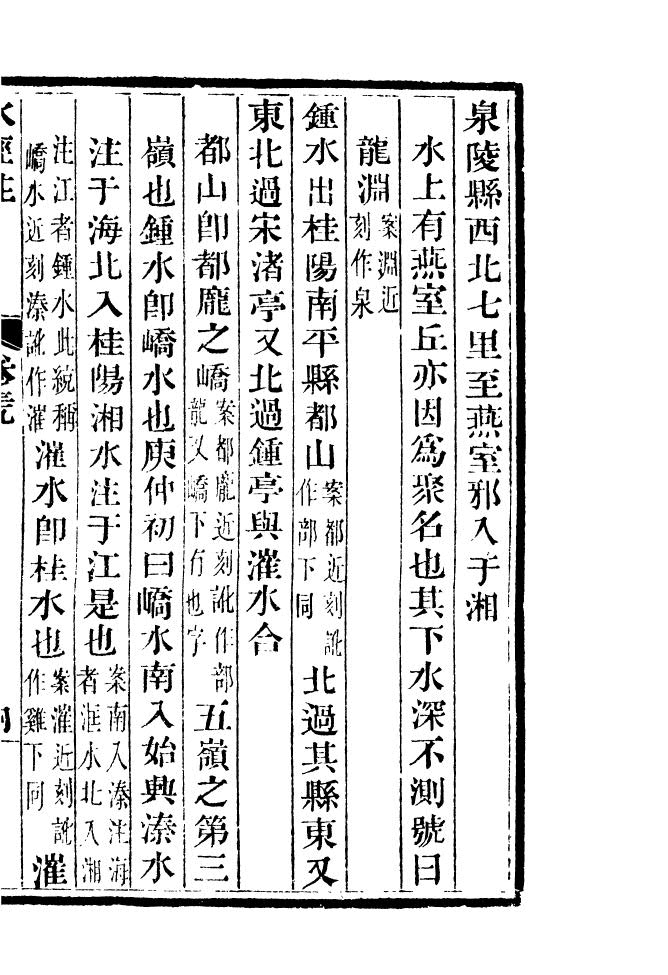 泉陵縣西北七里至燕室邪入于湘
水上有燕室丘亦因爲聚名也其下水深不測號曰
龍淵案淵近刻作泉
鍾水出桂陽南平縣都山案都近刻訛作部下同北過其縣東又
東北過宋渚亭又北過鍾亭與灌水合
都山卽都龐之嶠案都龐近刻訛作部龍又嶠下有也字五嶺之第三
嶺也鍾水卽嶠水也庾仲初曰嶠水南入始興溱水
注于海北入桂陽湘水注于江是也案南入溱注海者洭水北入湘
注江者鍾水此統稱嶠水近刻溱訛作灌灌水卽桂水也案灌近刻訛作雞下同灌
水經注
卷